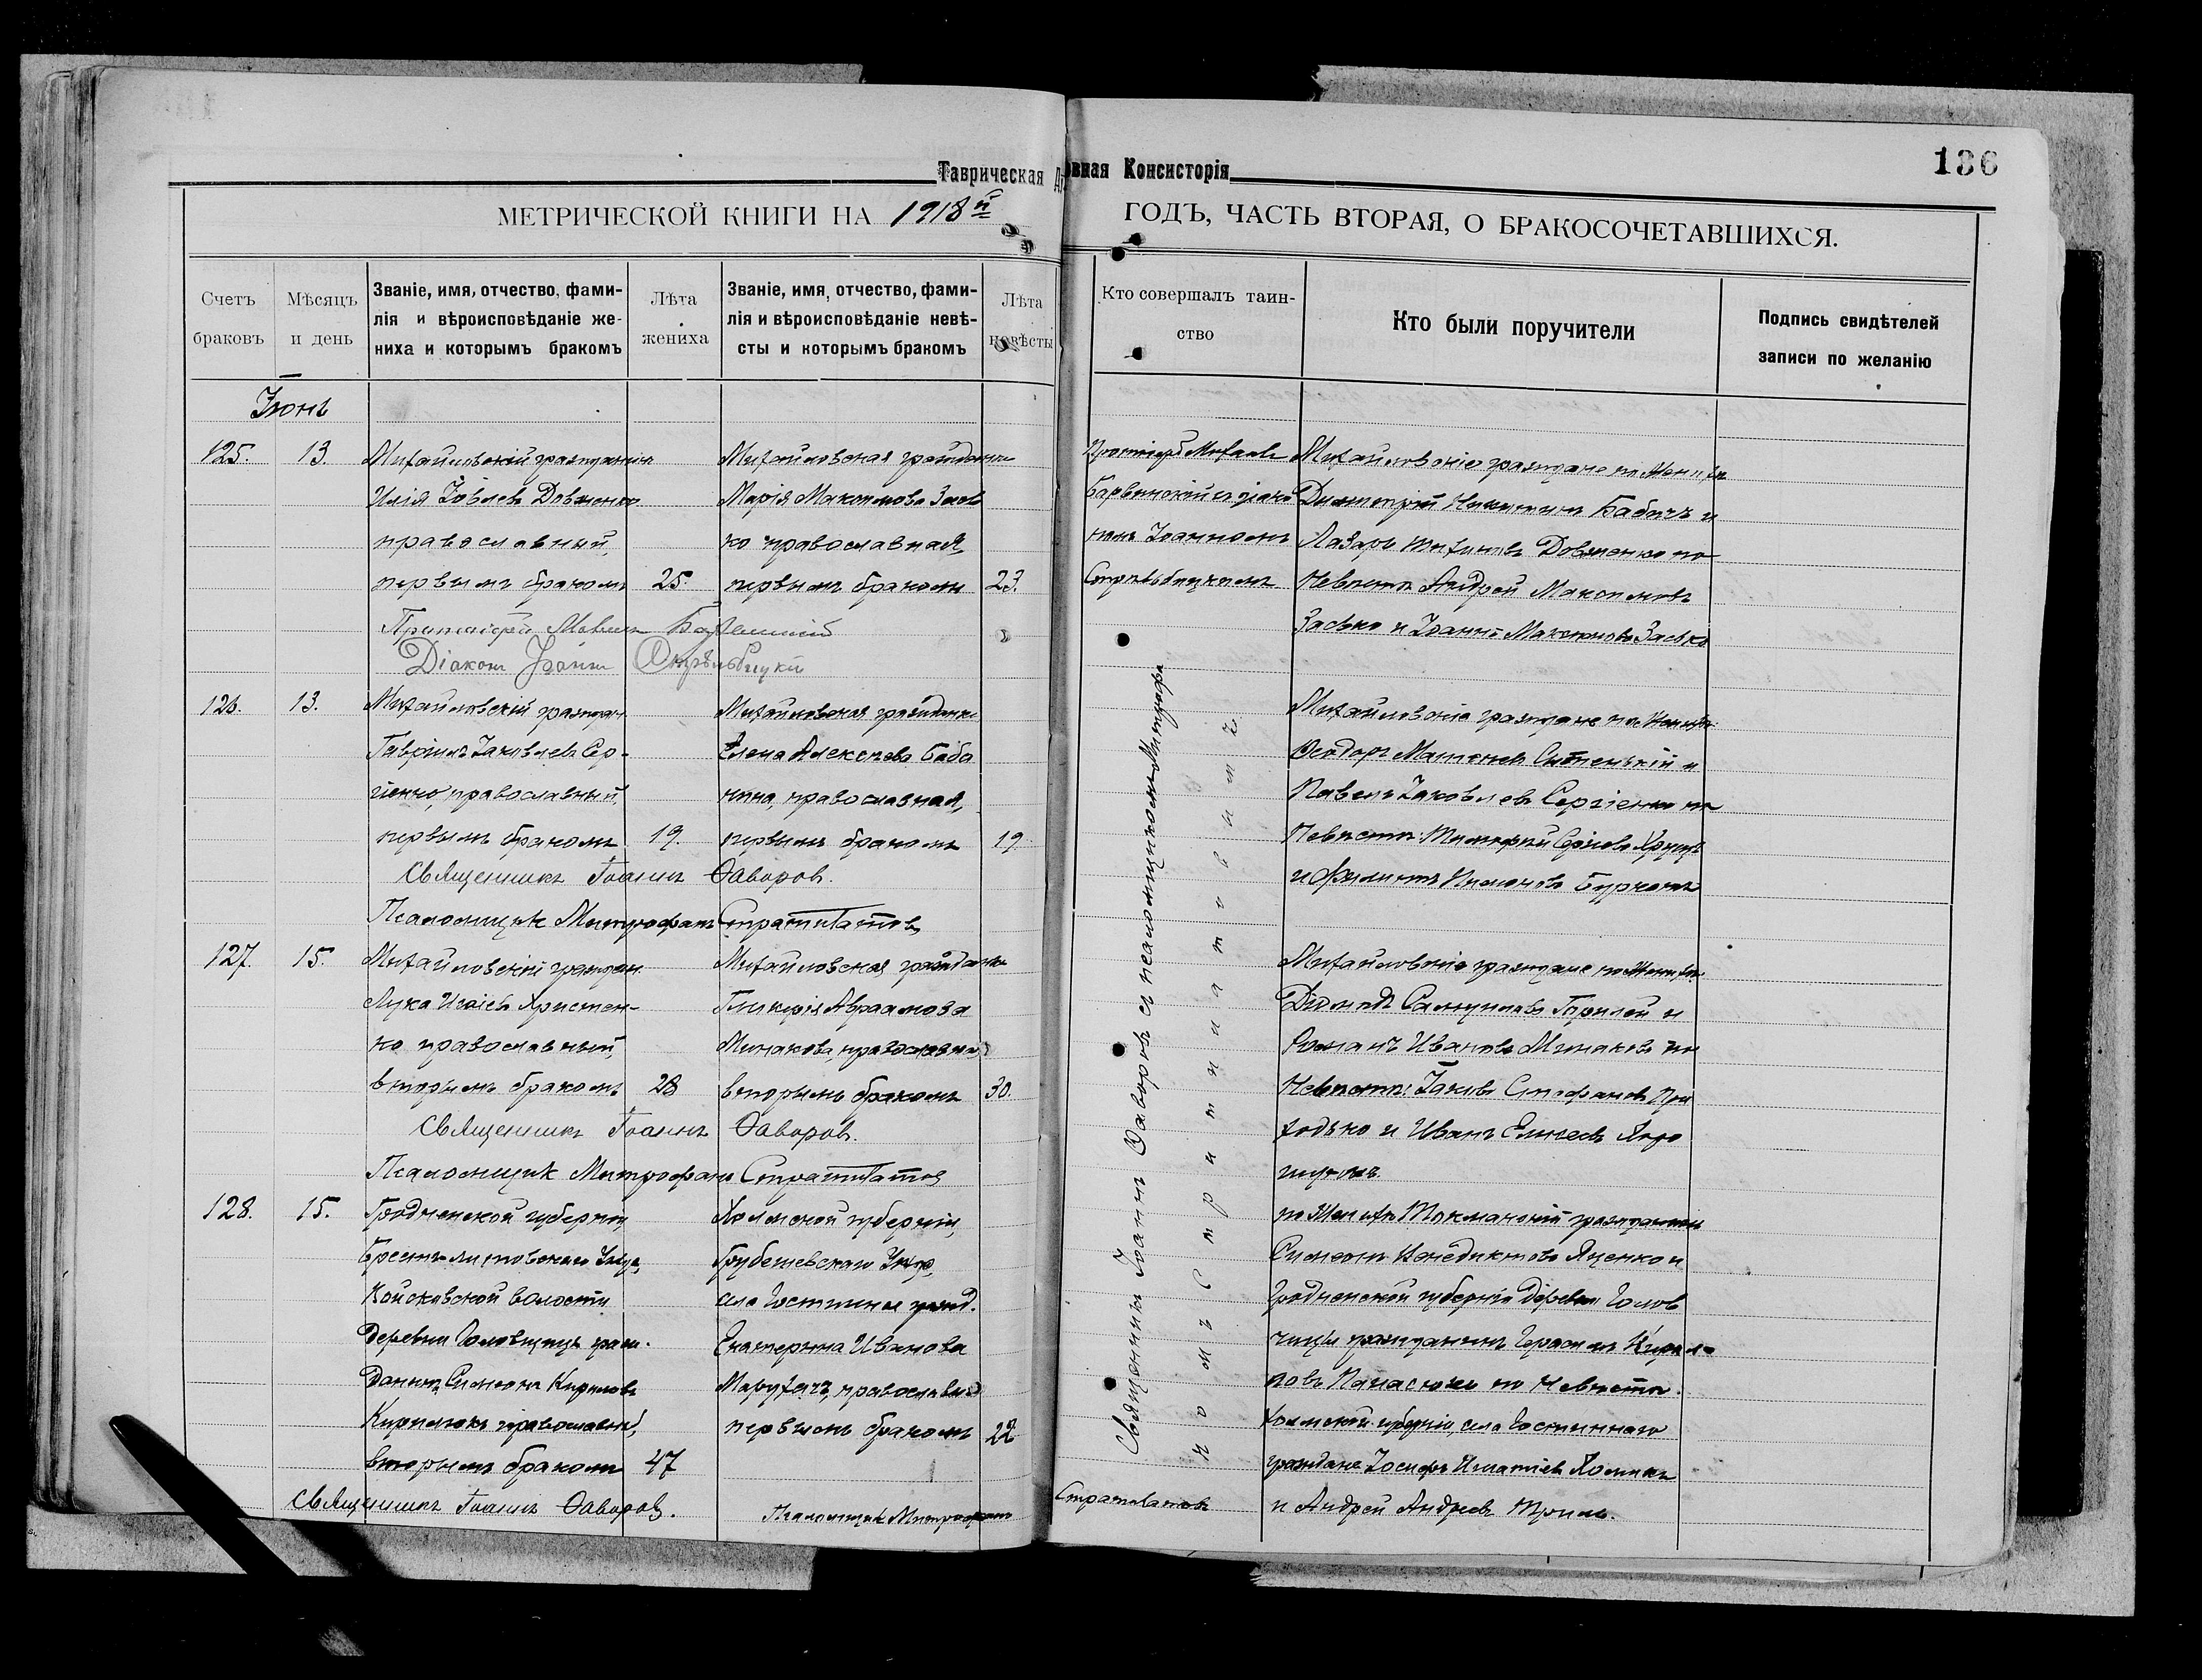 136
Таврическая Духовная Консисторія
МЕТРИЧЕСКОЙ КНИГИ НА 1918й ГОДЪ, ЧАСТЬ ВТОРАЯ, О БРАКОСОЧЕТАВШИХСЯ.
Счетъ браковъ
Мѣсяцъ и день
Званіе, имя, отчество, фами-
лія и вѣроисповѣданіе же-
ниха и которымъ бракомъ
Лѣта
жениха
Званіе, имя, отчество, фами-
лія и вѣроисповѣданіе невѣ-
сты и которымъ бракомъ
Лѣта
невѣсты
Кто совершалъ таин-
ство
Кто были поручители
Подпись свидѣтелей
записи по желанію
Іюнь
125.
13.
Михайловскій гражданинъ
Илія Іовлевъ Довженко
православный,
первымъ бракомъ
25.
Михайловская гражданка
Марія Максимова Засъ
ко православная
первымъ бракомъ
23.
Протоіерей Михаилъ
Барвинскій съ діако
номъ Іоанномъ
Стрельбицкимъ
Михайловскіе граждане по Жениху
Димитрій Никитинъ Бабичъ и
Лазарь Довженко по
Невѣстѣ Андрей Максимовъ
Засько и Іоаннъ Максимовъ Засько
Протоіерей
Діаконъ Іоаннъ Стрѣльбицкій
126.
13.
Михайловскій граждан
Гавріилъ Іаковлевъ Сер-
гіенко, православный,
первымъ бракомъ
19.
Михайловская гражданка
Елена Алексѣева Баба
нина, православная,
первымъ бракомъ
19.
Михайловскіе граждане по Жениху
Ѳеодоръ Сытенькій и
Павелъ Іаковлевъ Сергіенко по
Невѣстѣ: Тимофей
и Филиппъ
Священникъ Іоаннъ Ѳаворовъ.
Псаломщикъ Митрофанъ Стратилатовъ
127.
15.
Михайловскій граждан
Лука Исаіевъ Христен-
ко православный,
вторымъ бракомъ
28
Михайловская гражданка
Гликерія Авраамова
Минакова, православная
вторымъ бракомъ
30.
Михайловскіе граждане по Жениху
Діомидъ Самуиловъ и
Романъ Ивановъ Минаковъ по
Невѣстѣ: Іаковъ Стефановъ При
ходько и Иванъ Елисеевъ
Священникъ Іоаннъ Ѳаворовъ.
Псаломщикъ Митрофанъ Стратилатовъ
128.
15.
Гродненской губерніи
Брестъ-литовскаго Уѣзда,
Войской волости
деревни Головчицъ граж-
данинъ Симеонъ Кириловъ
Кирилюкъ православный,
вторымъ бракомъ
47
Холмской губерніи,
Грубешевскаго Уѣзд,
села Гостинное гражд.
Екатерина Иванова
православная
первымъ бракомъ
22
по Жениху Токмакскій гражданинъ
Симеонъ Венедиктовъ Яценко и
Гродненской губерніи деревни Голов
чицы гражданинъ Герасимъ Кирил-
ловъ Панасюкъ по Невѣстѣ
Холмской губерніи, села Гостиннаго
граждане Іосифъ Игнатіевъ
и Андрей Андреевъ
Священникъ Іоаннъ Ѳаворовъ.
Псаломщикъ Митрофанъ
Стратилатовъ
Священникъ Іоаннъ Ѳаворовъ съ псаломщикомъ Митрофа
номъ Стратилатовымъ